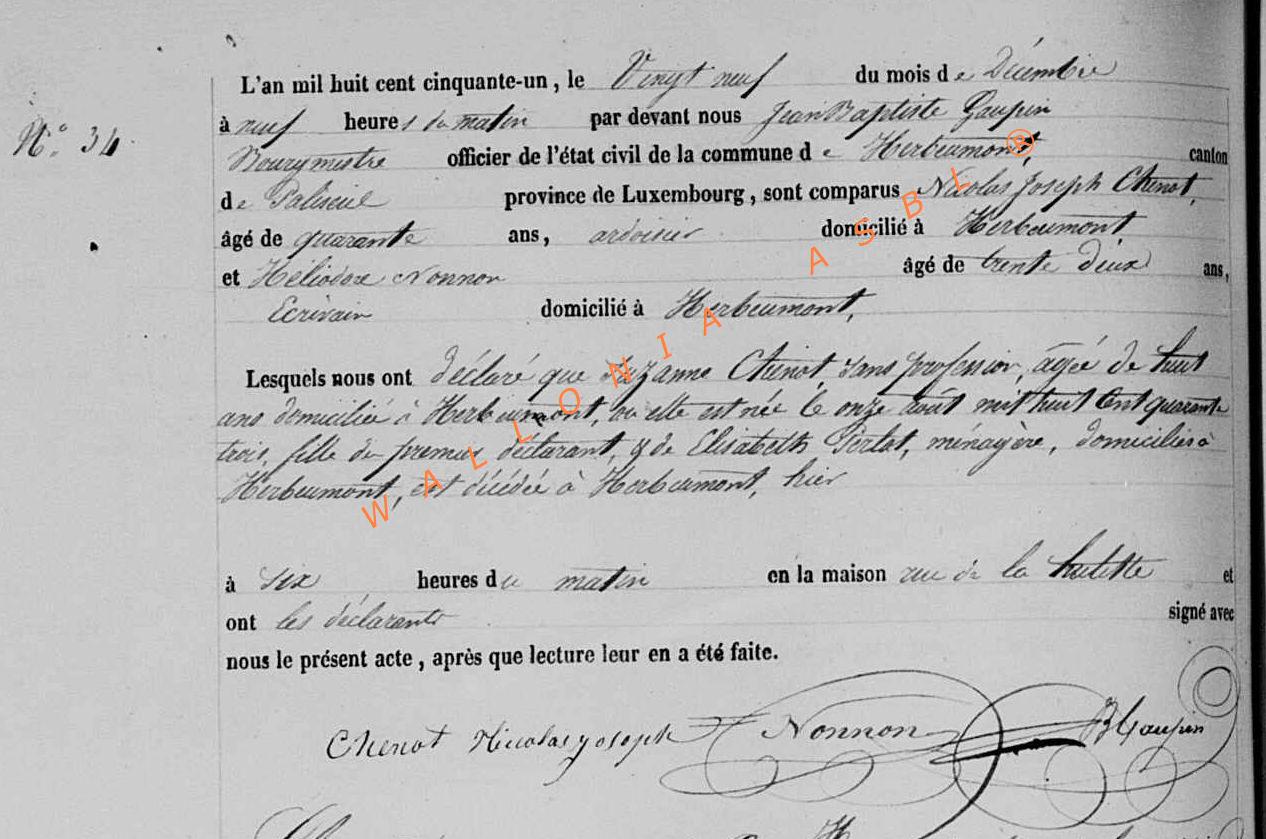 L'an mil huit cent cinquante-un, le Vingt neuf du mois de Décembre
N° 34
à neuf heures du matin par devant nous Jean Baptiste Gaupin
Bourgmestre officier de l'état civil de la commune de Herbeumont, canton
de Paliseul province de Luxembourg, sont comparus Nicolas Joseph Chenot,
âgé de quarante ans, ardoisier domicilié à Herbeumont
et Héliodore Nonnon âgé de trente deux ans,
Ecrivain domicilié à Herbeumont,
Lesquels nous ont déclaré que Suzanne Chenot, sans profession, âgée de huit
ans domiciliée à Herbeumont, ou elle est née le onze août mil huit Cent quarante
trois, fille du premier déclarant, & de Elisabeth Pierlot, ménagère, domiciliés à
Herbeumont, est décédée à Herbeumont, hier
à six heures du matin en la maison rue de la hulette et
ont les déclarants signé avec
nous le présent acte, après que lecture leur en a été faite.
Chenot Niccolas yosoph Nonnon JBGaupin
WALLONIA ASBL ®